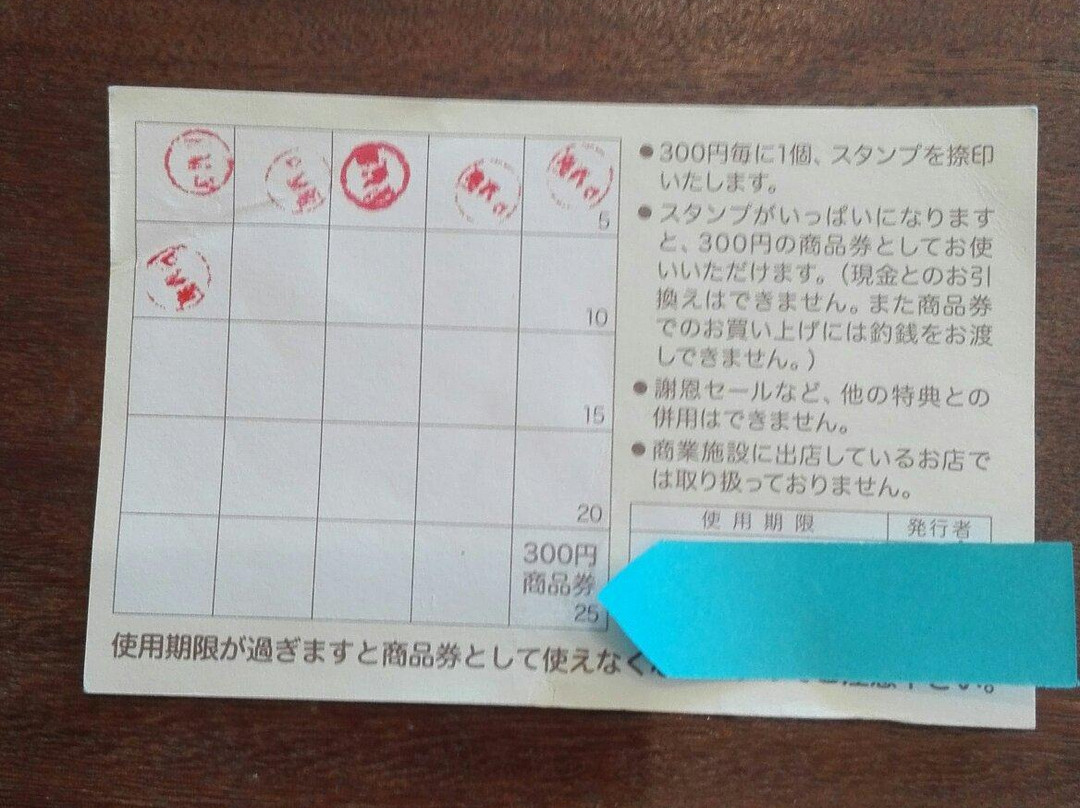 5
10
15
20
300円
商品券
25
●300円毎に1個、スタンプを捺印
いたします。
●スタンプがいっぱいになります
と、300円の商品券としてお使
いいただけます。（現金とのお引
換えはできません。また商品券
でのお買い上げには釣銭をお渡
しできません。）
●謝恩セールなど、他の特典との
併用はできません。
●商業施設に出店しているお店で
は取り扱っておりません。
使用期限
発行者
使用期限が過ぎますと商品券として使えなく